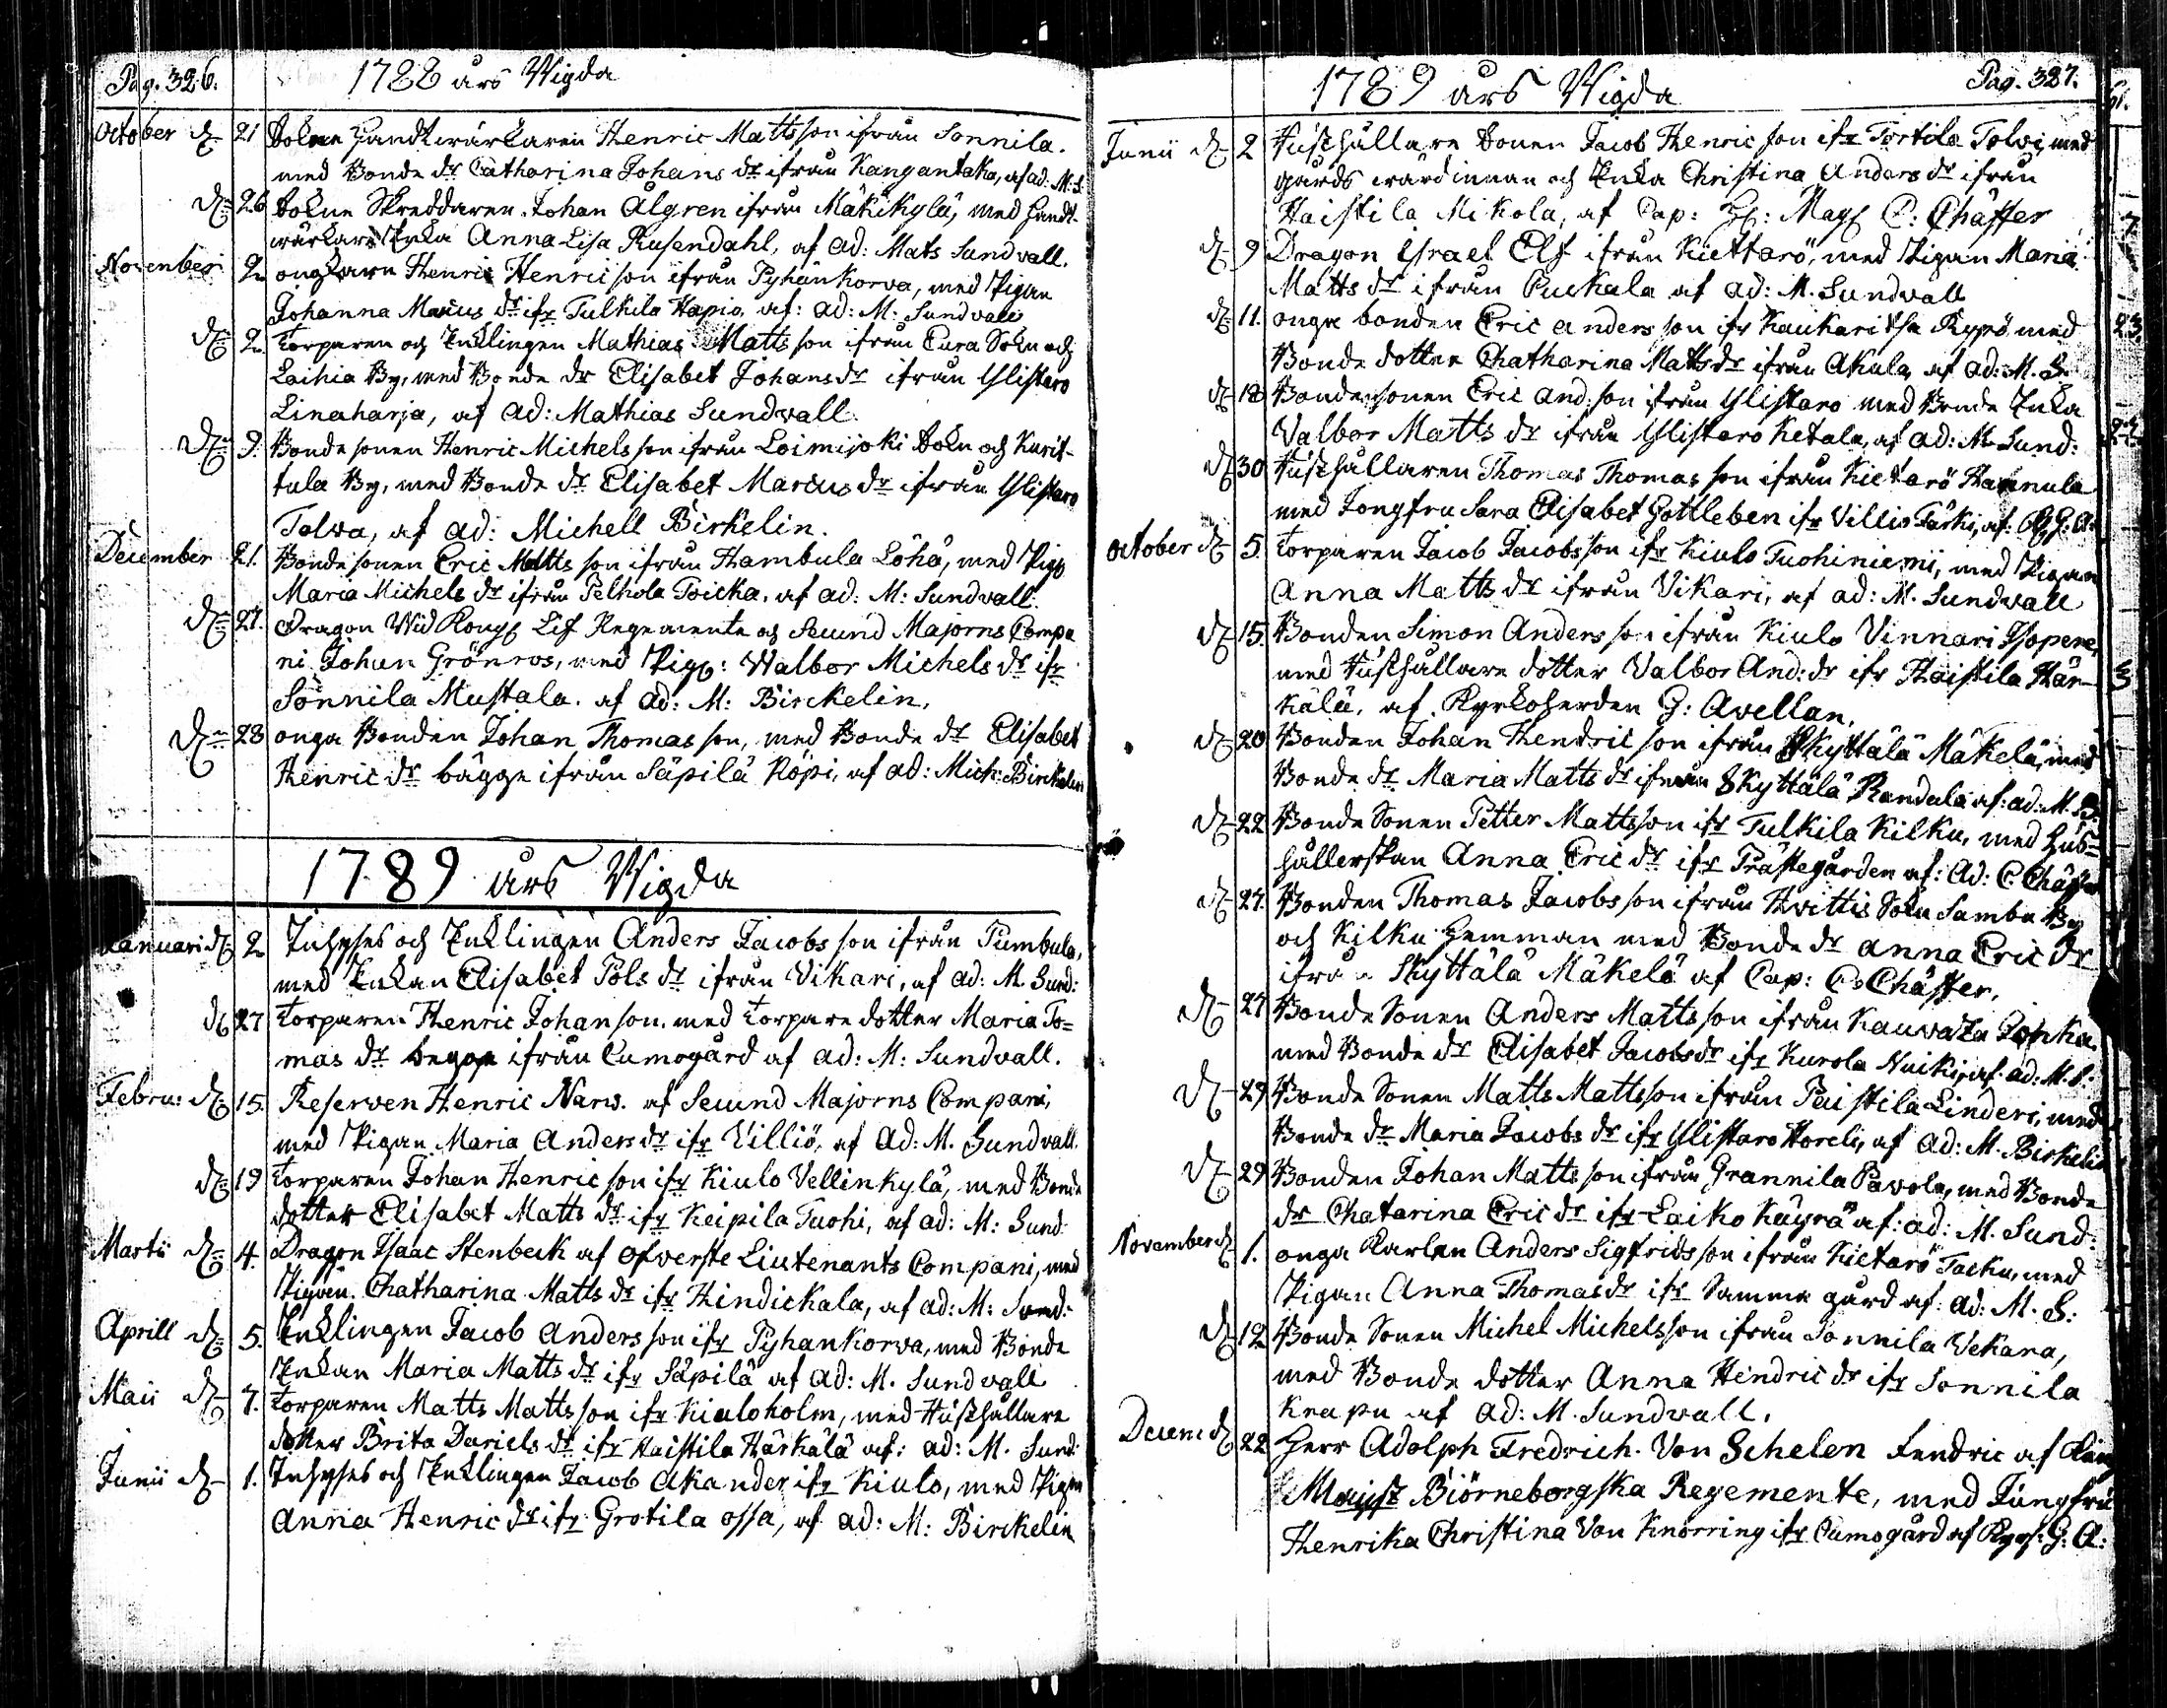 Pag. 326.
1788 års Wigda
October d: 21 Sokne Handtwärkaren Henric Mattsson ifrån Sonnila.
med Bonde dr Catharina Johans dr ifrån Kangantaka, af ad: M: S.
d: 26 Sokne Skreddaren Johan Algren ifrån Mäkikylä, med Handt-
wärkare Enka Anna Lisa Rusendahl, af ad: Mats Sundvall.
November 2 ongkarn Henric Henricson ifrån Pyhänkorva, med Pigan
Johanna Marcus dr ifr Tulkila Hapio, af: ad: M: Sundvall
d: 2 Torparen och Enklingen Mathias Mattsson ifrån Eura Sokn och
Laihia By, med Bonde dr Elisabet Johans dr ifrån Ylistaro
Linaharja, af ad: Mathias Sundvall.
d: 9. Bonde sonen Henric Michelsson ifrån Loimijoki Sokn och Karit-
tula By, med Bonde dr Elisabet Marcus dr ifrån Ylistaro
Tolva, af ad: Michell Birkelin.
December 21. Bonde sonen Eric Mattsson ifrån Hambula Löhä, med Pig:
Maria Michels dr ifrån Pelhola Poicka, af ad: M: Sundvall.
d: 27. Dragon Wid Kongl Lif Regemente och Secund Majorns Compa
ni Johan Grönros, med Pig: Walbor Michels dr ifr
Sonnila Mustala. af ad: M: Birckelin.
d: 28 onga Bonden Johan Thomasson, med Bonde dr Elisabet
Henric dr bägge ifrån Säpilä Köpi, af ad: Mich: Birckelin
1789 års Wigda
Januari d: 2 Inhyses och Enklingen Anders Jacobsson ifrån Pumbula,
med Enkan Elisabet Pols dr ifrån Vikari, af ad: M. Sund:
d: 27 Torparen Henric Johanson. med Torpare dotter Maria To=
mas dr begge ifrån Cumogård af ad: M: Sundvall.
Febru: d: 15. Reserven Henric Narw. af Secund Majorns Compani,
med Pigan Maria Anders dr ifr Villiö, af Ad: M. Sundvall.
d: 19 Torparen Johan Henricson ifr Kiulo Vellinkylä, med Bonde
dotter Elisabet Matts dr ifr Keipila Tuohi, af ad: M: Sund:
Martii d: 4. Dragon Isaac Stenbeck af Öfverste Liutenants Compani, med
Pigan. Chatharina Matts dr ifr Hindickala, af ad: M: Sund:
Aprill d: 5. Enklingen Jacob Andersson ifr Pyhankorva, med Bonde
Enkan Maria Matts dr ifr Säpilä af ad: M. Sundvall
Maii d: 7. Torparen Matts Mattsson ifr Kiuloholm, med Husthållare
dotter Brita Dariels dr ifr Haistila Härkälä af: ad: M. Sund:
Junii d: 1. Inhyses och Enklingen Jacob Akander ifr Kiulo, med Pigan
Anna Henric dr ifr Grotila ossa, af ad: M: Birckelin
1789 års Wigda
Pag. 327.
Junii d: 2 Husthållare Sonen Jacob Henricson ifr Tortila Tolvi, med
gårds wärdinnan och Enka Christina Anders dr ifrån
Haistila Mikola, af Cap: H: Mag C: Chäffer
d: 9 Dragon Israel Elf ifrån Kiettarö, med Pigan Maria
Matts dr ifrån Puckala af ad: M. Sundvall
d: 11. onga bonden Eric Andersson ifr Kaukaritsa Rypö med
Bonde dotter Chatharina Matts dr ifrån Akula, af ad: M. S.
d: 18 Bondesonen Eric And:son ifrån Ylistaro med Bonde Enka
Valbor Matts dr ifrån Ylistaro Ketala, af ad: M. Sund:
d: 30 Husthållaren Thomas Thomasson ifrån Kietarö Hannula
med Jongfru Sara Elisabet Gottleben ifr Villio Järki, af:
October d: 5. Torparen Jacob Jacobsson ifr Kiulo Tuohiniemi, med Pigan
Anna Matts dr ifrån Vikari, af ad: M. Sundvall
d: 15. Bonden Simon Andersson ifrån Kiulo Vinnari Isopere,
med Husthållare dotter Valbor And: dr ifr Haistila Här-
kälä, af Kyrkoherden G: Avellan.
d: 20 Bonden Johan Hendricson ifrån Skyttälä Mäkelä, med
Bonde dr Maria Matts dr ifrån Skyttälä Randala af: ad: M. S.
d: 22 Bonde Sonen Petter Mattsson ifr Tulkila Kilku, med Hus=
hållerskan Anna Eric dr ifr Prästegården af: Ad: C. Chäffer
d: 27. Bonden Thomas Jacobsson ifrån Hvittis Sokn Sambu By
och Kilku Hemman med Bonde dr Anna Eric dr
ifrån Skyttälä Mäkelä af Cap: C: Chäffer.
d: 27 Bonde Sonen Anders Mattsson ifrån Kauvatza Jonka
med Bonde dr Elisabet Jacobs dr ifr Kurola Nuikis, af: ad: M. S.
d: 29 Bonde Sonen Matts Mattsson ifrån Paistila Linderi, med
Bonde dr Maria Jacobs dr ifr Ylistaro Horeli, af ad: M. Birkelin
d: 29 Bonden Johan Mattsson ifrån Grannila Pavola, med Bonde
dr Chatarina Eric dr ifr Laiko Käyrä af: ad: M. Sund:
November d: 1. onga Karlen Anders Sigfridsson ifrån Kietarö Tacku, med
Pigan Anna Thomas dr ifr Samma gård af: ad: M. S:
d: 12 Bonde Sonen Michel Michelsson ifrån Sonnila Vekara,
med Bonde dotter Anna Hendric dr ifr Sonnila
Knapu af ad: M. Sundvall.
Decem d: 22 Herr Adolph Fredrich. Von Schelen Fendric af
Maijst Biörneborgska Regemente, med Jungfru
Henrika Christina Von Knorring ifr Cumogård af G: A: